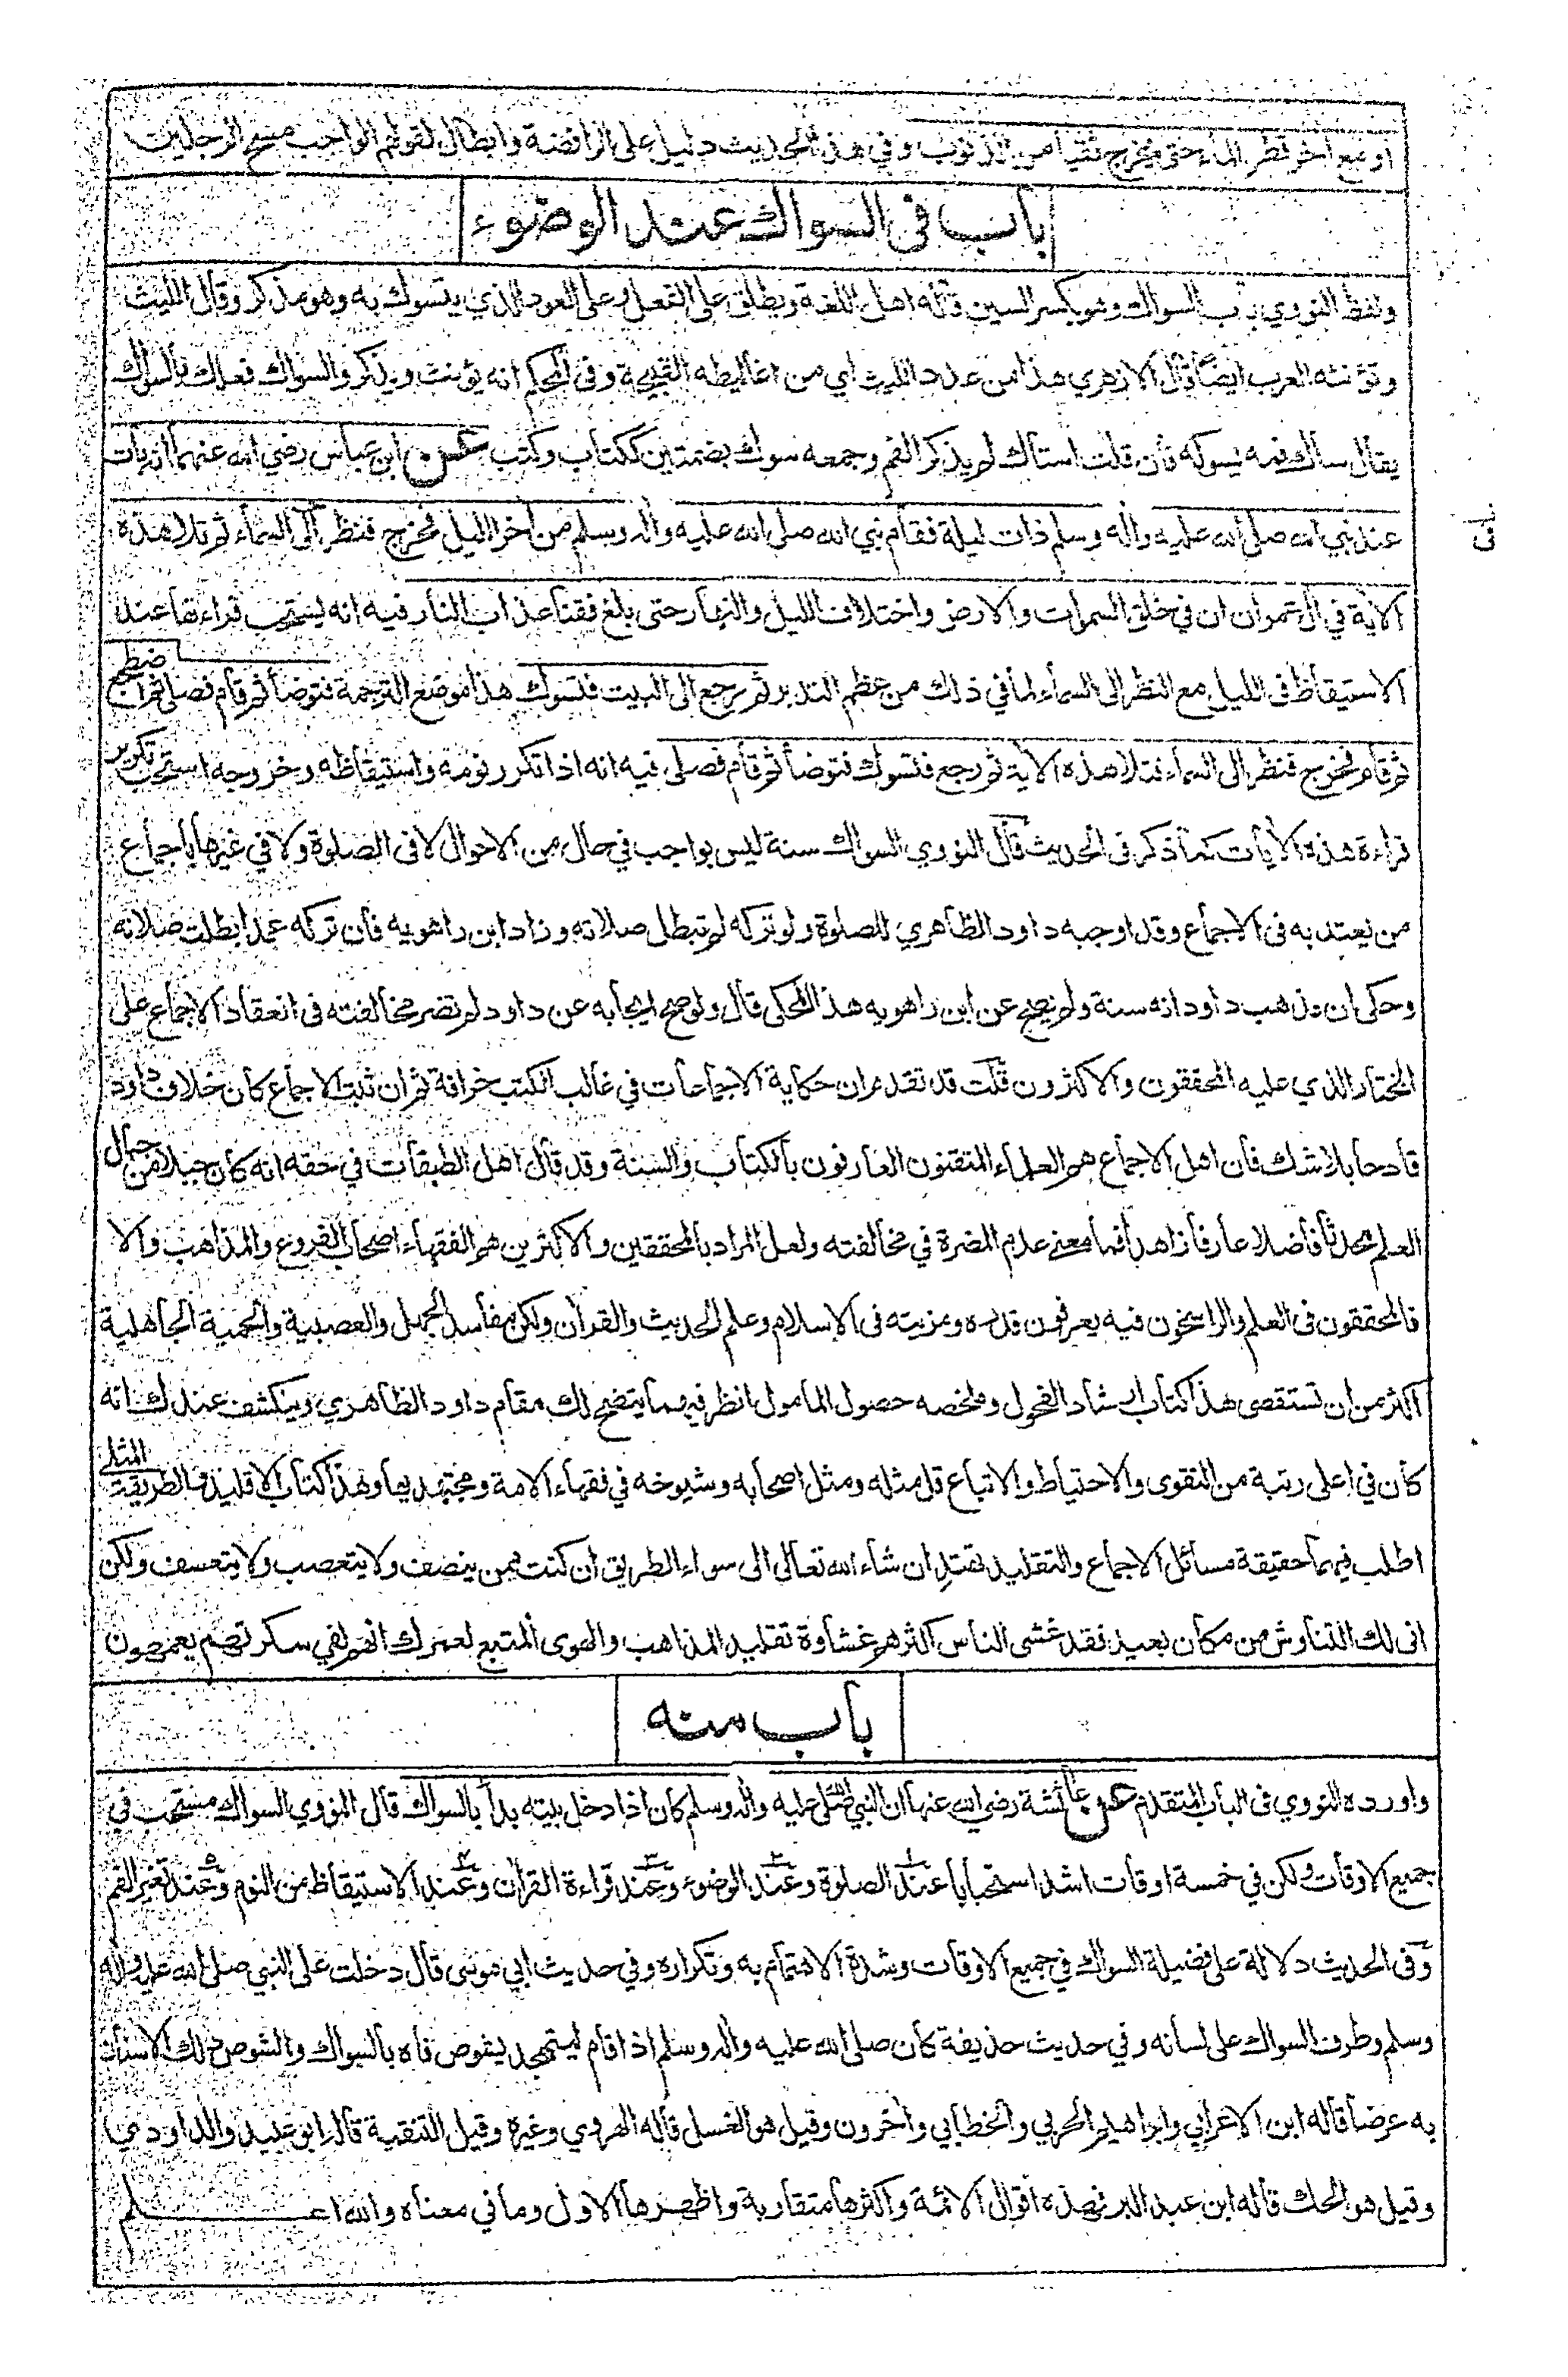 او مع اخر قطر الماء حتى يخرج نقيا من الذنوب وفي هذا الحديث دليل على الرافضة وابطال لقولهم الواجب مسح الرجلين
باب فى السواك عند الوضوء
ولفظ النووي باب السواك وهو بكسر السين قاله اهل اللغة ويطلق على الفعل وعلى العود الذي يتسوك به وهو مذكر وقال الليث
وتؤنثه العرب ايضا قال الازهري هذا من عدد الليث اي من اغاليطه القبيحة وفى المحكم انه يؤنث ويذكر والسواك فعلك بالسواك
يقال ساك فمه يسوكه فان قلت استاك لم يذكر الفم وجمعه سوك بضمتين ككتاب وكتب عن ابن عباس رضي الله عنهما انه بات
عند نبي الله صلى الله عليه واله وسلم ذات ليلة فقام نبي الله صلى الله عليه واله وسلم من اخر الليل فخرج فنظر الى السماء ثم تلا هذه
الاية في ال عمران ان في خلق السموات والارض واختلاف الليل والنهار حتى بلغ فقنا عذاب النار فيه انه يستحب قراءتها عند
الاستيقاظ فى الليل مع النظر الى السماء لما في ذلك من عظم التدبر ثم رجع الى البيت فتسوك هذا موضع الترجمة فتوضأ ثم قام فصلى ثم اضطجع
ثم قام فخرج فنظر الى السماء فتلا هذه الاية ثم رجع فتسوك فتوضأ ثم قام فصلى فيه انه اذا تكرر نومه واستيقاظه وخروجه استحب تكرير
قراءة هذه الايات كما ذكر فى الحديث قال النووي السواك سنة ليس بواجب في حال من الاحوال لا فى الصلوة ولا في غيرها باجماع
من يعتد به فى الاجماع وقد اوجبه داود الظاهري للصلوة ولو تركه لم تبطل صلاته وزاد ابن راهويه فان تركه عمدا بطلت صلاته
وحكى ان مذهب داود انه سنة ولم يصح عن ابن راهويه هذا المحكى قال ولو صح ايجابه عن داود لم تضر مخالفته فى انعقاد الاجماع على
المختار الذي عليه المحققون والاكثرون قلت قد تقدم ان حكاية الاجماعات في غالب الكتب خرافة ثم ان ثبت الاجماع كان خلاف داود
قادحا بلا شك فان اهل الاجماع هم العلماء المتقنون العارفون بالكتاب والسنة وقد قال اهل الطبقات في حقه انه كان جبلا من جبال
العلم محدثا فاضلا عارفا زاهدا فما معنى عدم المضرة في مخالفته ولعل المراد بالمحققين والاكثرين هم الفقهاء اصحاب الفروع والمذاهب والا
فالمحققون فى العلم والراسخون فيه يعرفون قدره ومزيته فى الاسلام وعلم الحديث والقران ولكن مفاسد الجهل والعصبية والحمية الجاهلية
اكثر من ان تستقصى هذا كتاب ارشاد الفحول وملخصه حصول المامول انظر فيهما يتضح لك مقام داود الظاهري وينكشف عندك انه
كان في اعلى رتبة من التقوى والاحتياط والاتباع قل مثله ومثل اصحابه وشيوخه في فقهاء الامة ومجتهديها وهذا كتاب الاقليد والطريقة المثلى
اطلب فيهما حقيقة مسائل الاجماع والتقليد تهتد ان شاء الله تعالى الى سواء الطريق ان كنت ممن ينصف ولا يتعصب ولا يتعسف ولكن
انى لك التناوش من مكان بعيد فقد غشى الناس اكثرهم غشاوة تقليد المذاهب والهوى المتبع لعمرك انهم لفي سكرتهم يعمهون
باب منه
واورده النووي فى الباب المتقدم عن عائشة رضي الله عنها ان النبي صلى الله عليه واله وسلم كان اذا دخل بيته بدأ بالسواك قال النووي السواك مستحب في
جميع الاوقات ولكن في خمسة اوقات اشد استحبابا عند الصلوة وعند الوضوء وعند قراءة القران وعند الاستيقاظ من النوم وعند تغير الفم
وفى الحديث دلالة على فضيلة السواك في جميع الاوقات وشدة الاهتمام به وتكراره وفي حديث ابي موسى قال دخلت على النبي صلى الله عليه واله
وسلم وطرف السواك على لسانه وفي حديث حذيفة كان صلى الله عليه واله وسلم اذا قام ليتهجد يشوص فاه بالسواك والشوص دلك الاسنان
به عرضا قاله ابن الاعرابي وابراهيم الحربي والخطابي واخرون وقيل هو الغسل قاله الهروي وغيره وقيل التنقية قاله ابو عبيد والداودي
وقيل هو الحك قاله ابن عبد البر فهذه اقوال الائمة واكثرها متقاربة واظهرها الاول وما في معناه والله اعلم